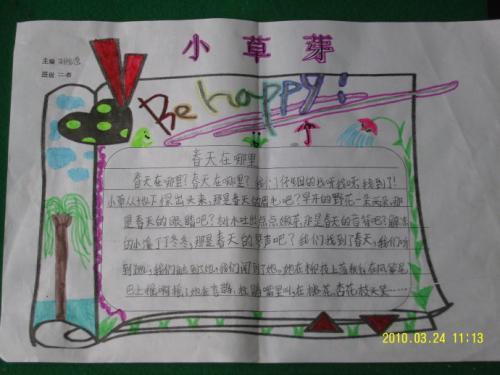 小草芽
主编
班级 二.
Be happy!
春天在哪里
春天在哪里?春天在哪里?我们仔细的找呀找呀,找到了!
小草从地下探出头来,那是春天的眉毛吧?早开的野花一朵两朵,那
是春天的眼睛吧?树木吐出点点嫩芽,那是春天的音符吧?解冻
的小溪丁丁冬冬,那是春天的琴声吧?我们找到了春天,我们听
到她,我们闻到了她,她在柳枝上荡秋千,在风筝尾
巴上摇啊摇;她在喜鹊,杜鹃嘴里叫,在桃花,杏花枝头笑……
2010.03.24 11:13